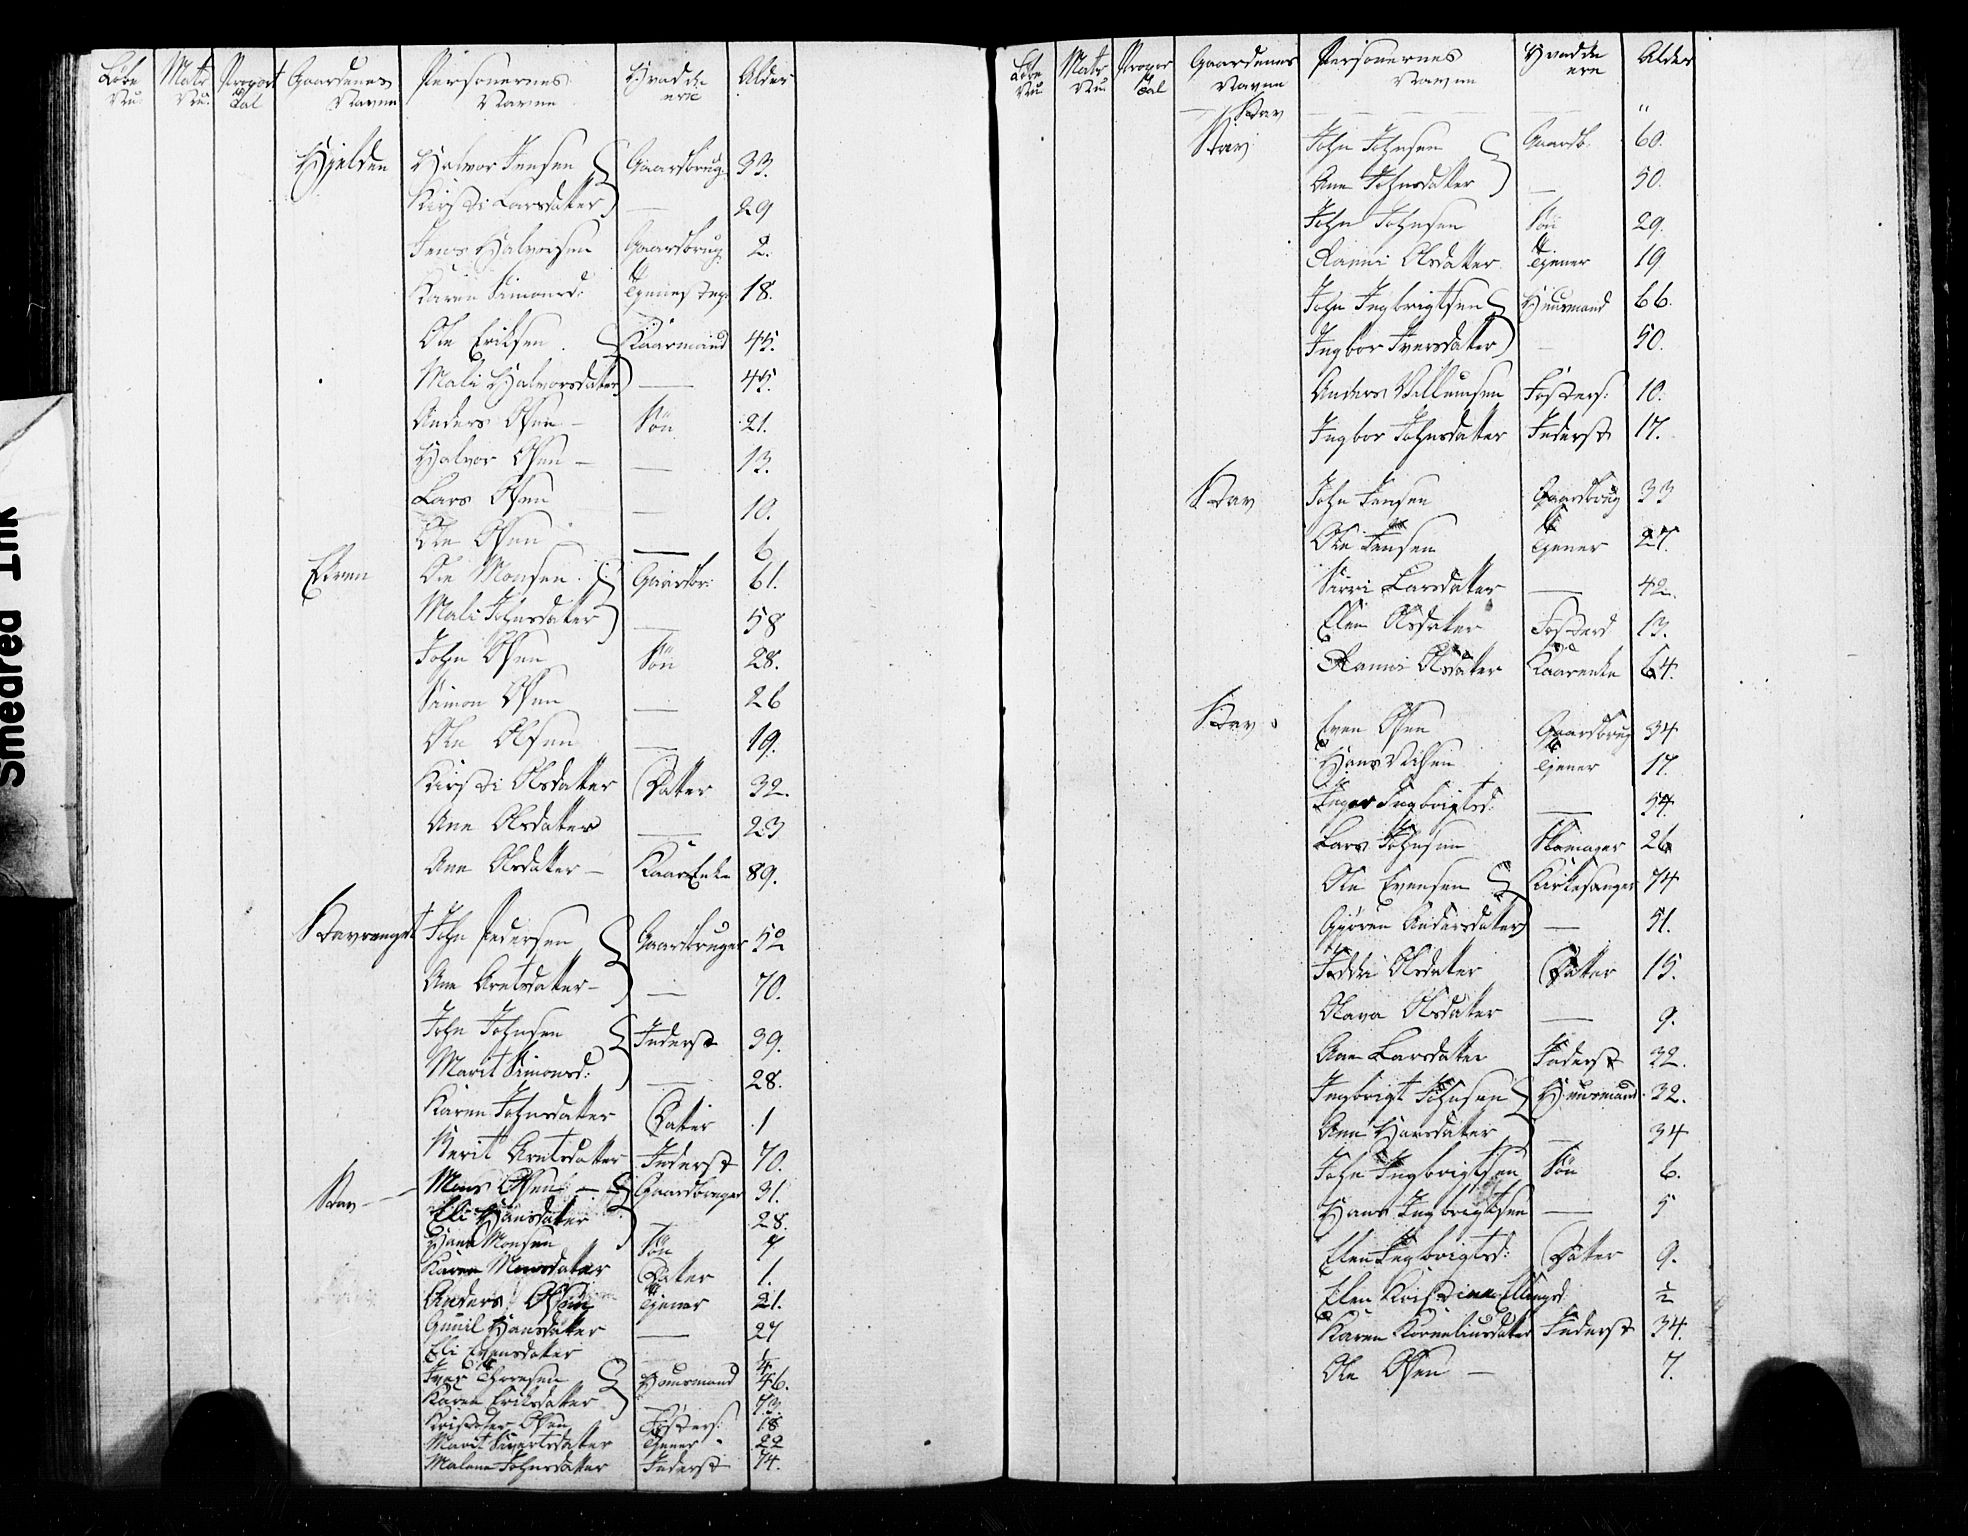 Løbe Nu. Matr Nu. Proport Tal Gaardenes Navne Personernes Navne Hvad de ere Alder
Hjelden Halvor Jensen Gaardbrug. 33.
Kirsti Larsdatter — 29
Jens Halvorsen Gaardbrug. 2.
Karen Simonsd: 18.
Ole Eriksen Kaarmand 45.
Mali Halvorsdatter — 45.
Anders Olsen — Søn 21.
Halvor Olsen — — 13.
Lars Olsen — 10.
Ole Olsen — 6
Ole Monsen Gaardbr: 61.
Mali Johnsdatter — 58
John Olsen Søn 28.
Simon Olsen — 26
Ole Olsen — 19.
Kirsti Olsdatter Datter 32.
Ane Olsdatter — 23
Ane Olsdatter — KaarEnke 89.
Stavrenget John Pedersen Gaardbruger 52
Ane Arntsdatter — — 70.
John Johnsen Inderst 39.
Marit Simonsd: — 28.
Karen Johnsdatter Datter 1
Berit Arntsdatter Inderst 70.
Stav — Mons Olsen — Gaardbruger 31.
Eli Hansdatter — 28.
Hans Monsen Søn 7
Karen Monsdatter Datter 1.
Anders Olsen Tjener 21.
Gunil Hansdatter — 27
Eli Evensdatter 1/4
Iver Thoresen Huusmand 46.
Karen Eriksdatter — 73.
Kristofer Olsen Fosters: 18
Marit Sivertsdatter Tjener 22
Malene Johnsdatter Inderst 74.
Løbe Nu. Matr Nu. Propor Tal Gaardenes Navne Personernes Navne Hvad de ere Alder
— Stav — — — — "
Stav John Johnsen Gaardb. 60.
Ane Johnsdatter — 50.
John Johnsen Søn 29.
Ranni Olsdatter Tjener 19
John Ingbrigtsen Huusmand 66.
Ingbor Iversdatter — 50.
Anders Villumsen Fosters: 10.
Ingbor Johnsdatter Inderst 17.
Stav John Jensen Gaardbrug 33
Ole Jensen Tjener 27.
Sirri Larsdatter — 42.
Elen Olsdatter Fosterd 13.
Ranni Olsdatter Kaarenke 64.
Stav Even Olsen Gaardbrug 34
Hans Tjener 17.
Inger Ingbrigtsd: — 54.
Lars Johnsen Skomager 26
Ole Evensen Kirkesanger 74
Gjøren Andersdatter — 51.
Olsdatter Datter 15.
Olava Olsdatter — 9.
Ane Larsdatter Inderst 32.
Ingbrigt Johnsen Huusmand 32.
Ane Hansdatter — 34
John Ingbrigtsen Søn 6.
Hans Ingbrigtsen — 5
Elen Ingbrigtsd: Datter 9.
Elen Kristine Ellingsd: 1/2
Karen Korneliusdatter Inderst 34.
Ole Olsen — 7.
Smeared Ink